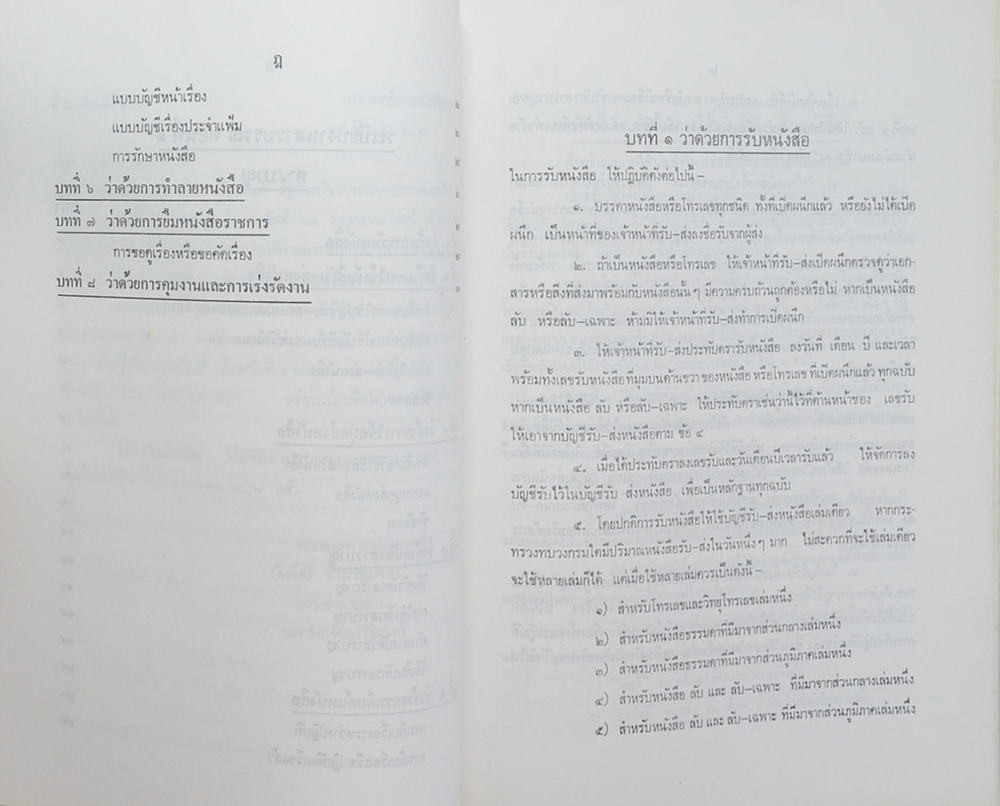 ฎ
แบบบัญชีหน้าเรื่อง
แบบบัญชีเรื่องประจำแฟ้ม
การรักษาหนังสือ
บทที่ ๖ ว่าด้วยการทำลายหนังสือ
บทที่ ๗ ว่าด้วยการยืมหนังสือราชการ
การขอดูเรื่องหรือขอคัดเรื่อง
บทที่ ๘ ว่าด้วยการคุมงานและการเร่งรัดงาน
บทที่ ๑ ว่าด้วยการรับหนังสือ
ในการรับหนังสือ ให้ปฏิบัติดังต่อไปนี้ –
๑. บรรดาหนังสือหรือโทรเลขทุกชนิด ทั้งที่เปิดผนึกแล้ว หรือยังไม่ได้เปิด
ผนึก เป็นหน้าที่ของเจ้าหน้าที่รับ–ส่งลงชื่อรับจากผู้ส่ง
๒. ถ้าเป็นหนังสือหรือโทรเลข ให้เจ้าหน้าที่รับ–ส่งเปิดผนึกตรวจดูว่าเอก-
สารหรือสิ่งที่ส่งมาพร้อมกับหนังสือนั้น ๆ มีความครบถ้วนถูกต้องหรือไม่ หากเป็นหนังสือ
ลับ หรือลับ–เฉพาะ ห้ามมิให้เจ้าหน้าที่รับ–ส่งทำการเปิดผนึก
๓. ให้เจ้าหน้าที่รับ–ส่งประทับตรารับหนังสือ ลงวันที่ เดือน ปี และเวลา
พร้อมทั้งเลขรับหนังสือ ที่มุมบนด้านขวา ของหนังสือ หรือโทรเลข ที่เปิดผนึกแล้ว ทุกฉบับ
หากเป็นหนังสือ ลับ หรือลับ–เฉพาะ ให้ประทับตราเช่นว่านี้ไว้ที่ด้านหน้าซอง เลขรับ
ให้เอาจากบัญชีรับ–ส่งหนังสือตาม ข้อ ๔
๔. เมื่อได้ประทับตราลงเลขรับและวันเดือนปีเวลารับแล้ว ให้จัดการลง
บัญชีรับไว้ในบัญชีรับ ส่งหนังสือ เพื่อเป็นหลักฐานทุกฉบับ
๕. โดยปกติการรับหนังสือให้ใช้บัญชีรับ–ส่งหนังสือเล่มเดียว หากกระ-
ทรวงทบวงกรมใดมีปริมาณหนังสือรับ–ส่งในวันหนึ่ง ๆ มาก ไม่สะดวกที่จะใช้เล่มเดียว
จะใช้หลายเล่มก็ได้ แต่เมื่อใช้หลายเล่มควรเป็นดังนี้ –
๑) สำหรับโทรเลขและวิทยุโทรเลขเล่มหนึ่ง
๒) สำหรับหนังสือธรรมดาที่มีมาจากส่วนกลางเล่มหนึ่ง
๓) สำหรับหนังสือธรรมดา ที่มีมาจากส่วนภูมิภาคเล่มหนึ่ง
๔) สำหรับหนังสือ ลับ และ ลับ–เฉพาะ ที่มีมาจากส่วนกลางเล่มหนึ่ง
๕) สำหรับหนังสือ ลับ และ ลับ–เฉพาะ ที่มีมาจากส่วนภูมิภาคเล่มหนึ่ง